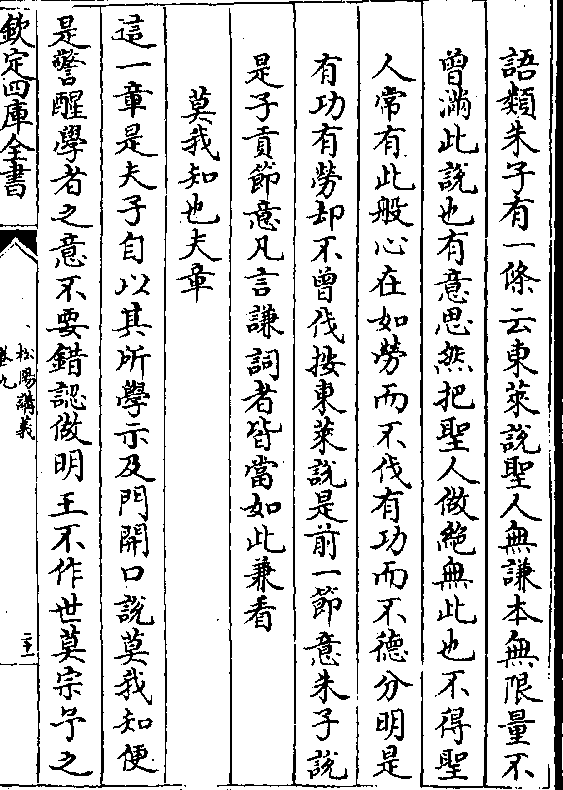 語類朱子有一條云東萊說聖人無謙本無限量不
曾滿此說也有意思然把聖人做絶無此也不得聖
人常有此般心在如勞而不伐有功而不德分明是
有功有勞却不曾伐按東萊說是前一節意朱子說
是子貢節意凡言謙詞者皆當如此兼看
莫我知也夫章
這一章是夫子自以其所學示及門開口說莫我知便
是警醒學者之意不要錯認做明王不作世莫宗予之
欽定四庫全書
松陽講義
卷九